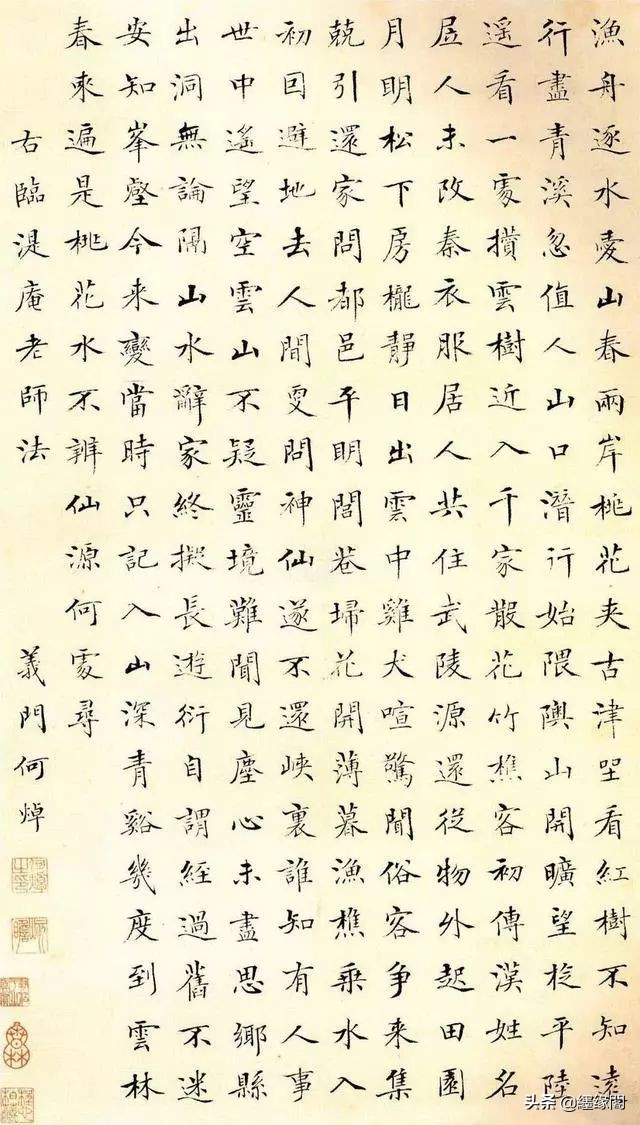 漁舟逐水愛山春兩岸桃花夾古津坐看紅樹不知遠
行盡青溪忽值人山口潛行始隈隩山開曠望旋平陸
遥看一處攢雲樹近入千家散花竹樵客初傳漢姓名
居人未改秦衣服居人共住武陵源還從物外起田園
月明松下房櫳靜日出雲中雞犬喧驚聞俗客爭来集
競引還家問都邑平明閭巷掃花開薄暮漁樵乗水入
初因避地去人間更問神仙遂不還峽裏誰知有人事
世中遙望空雲山不疑靈境難聞見塵心未盡思鄉縣
出洞無論隔山水辭家終擬長遊衍自謂經過舊不迷
安知峯壑今来變當時只記入山深青谿幾度到雲林
春來遍是桃花水不辨仙源何處尋
右臨湜庵老師法 義門何焯
头条 @纆缘閣